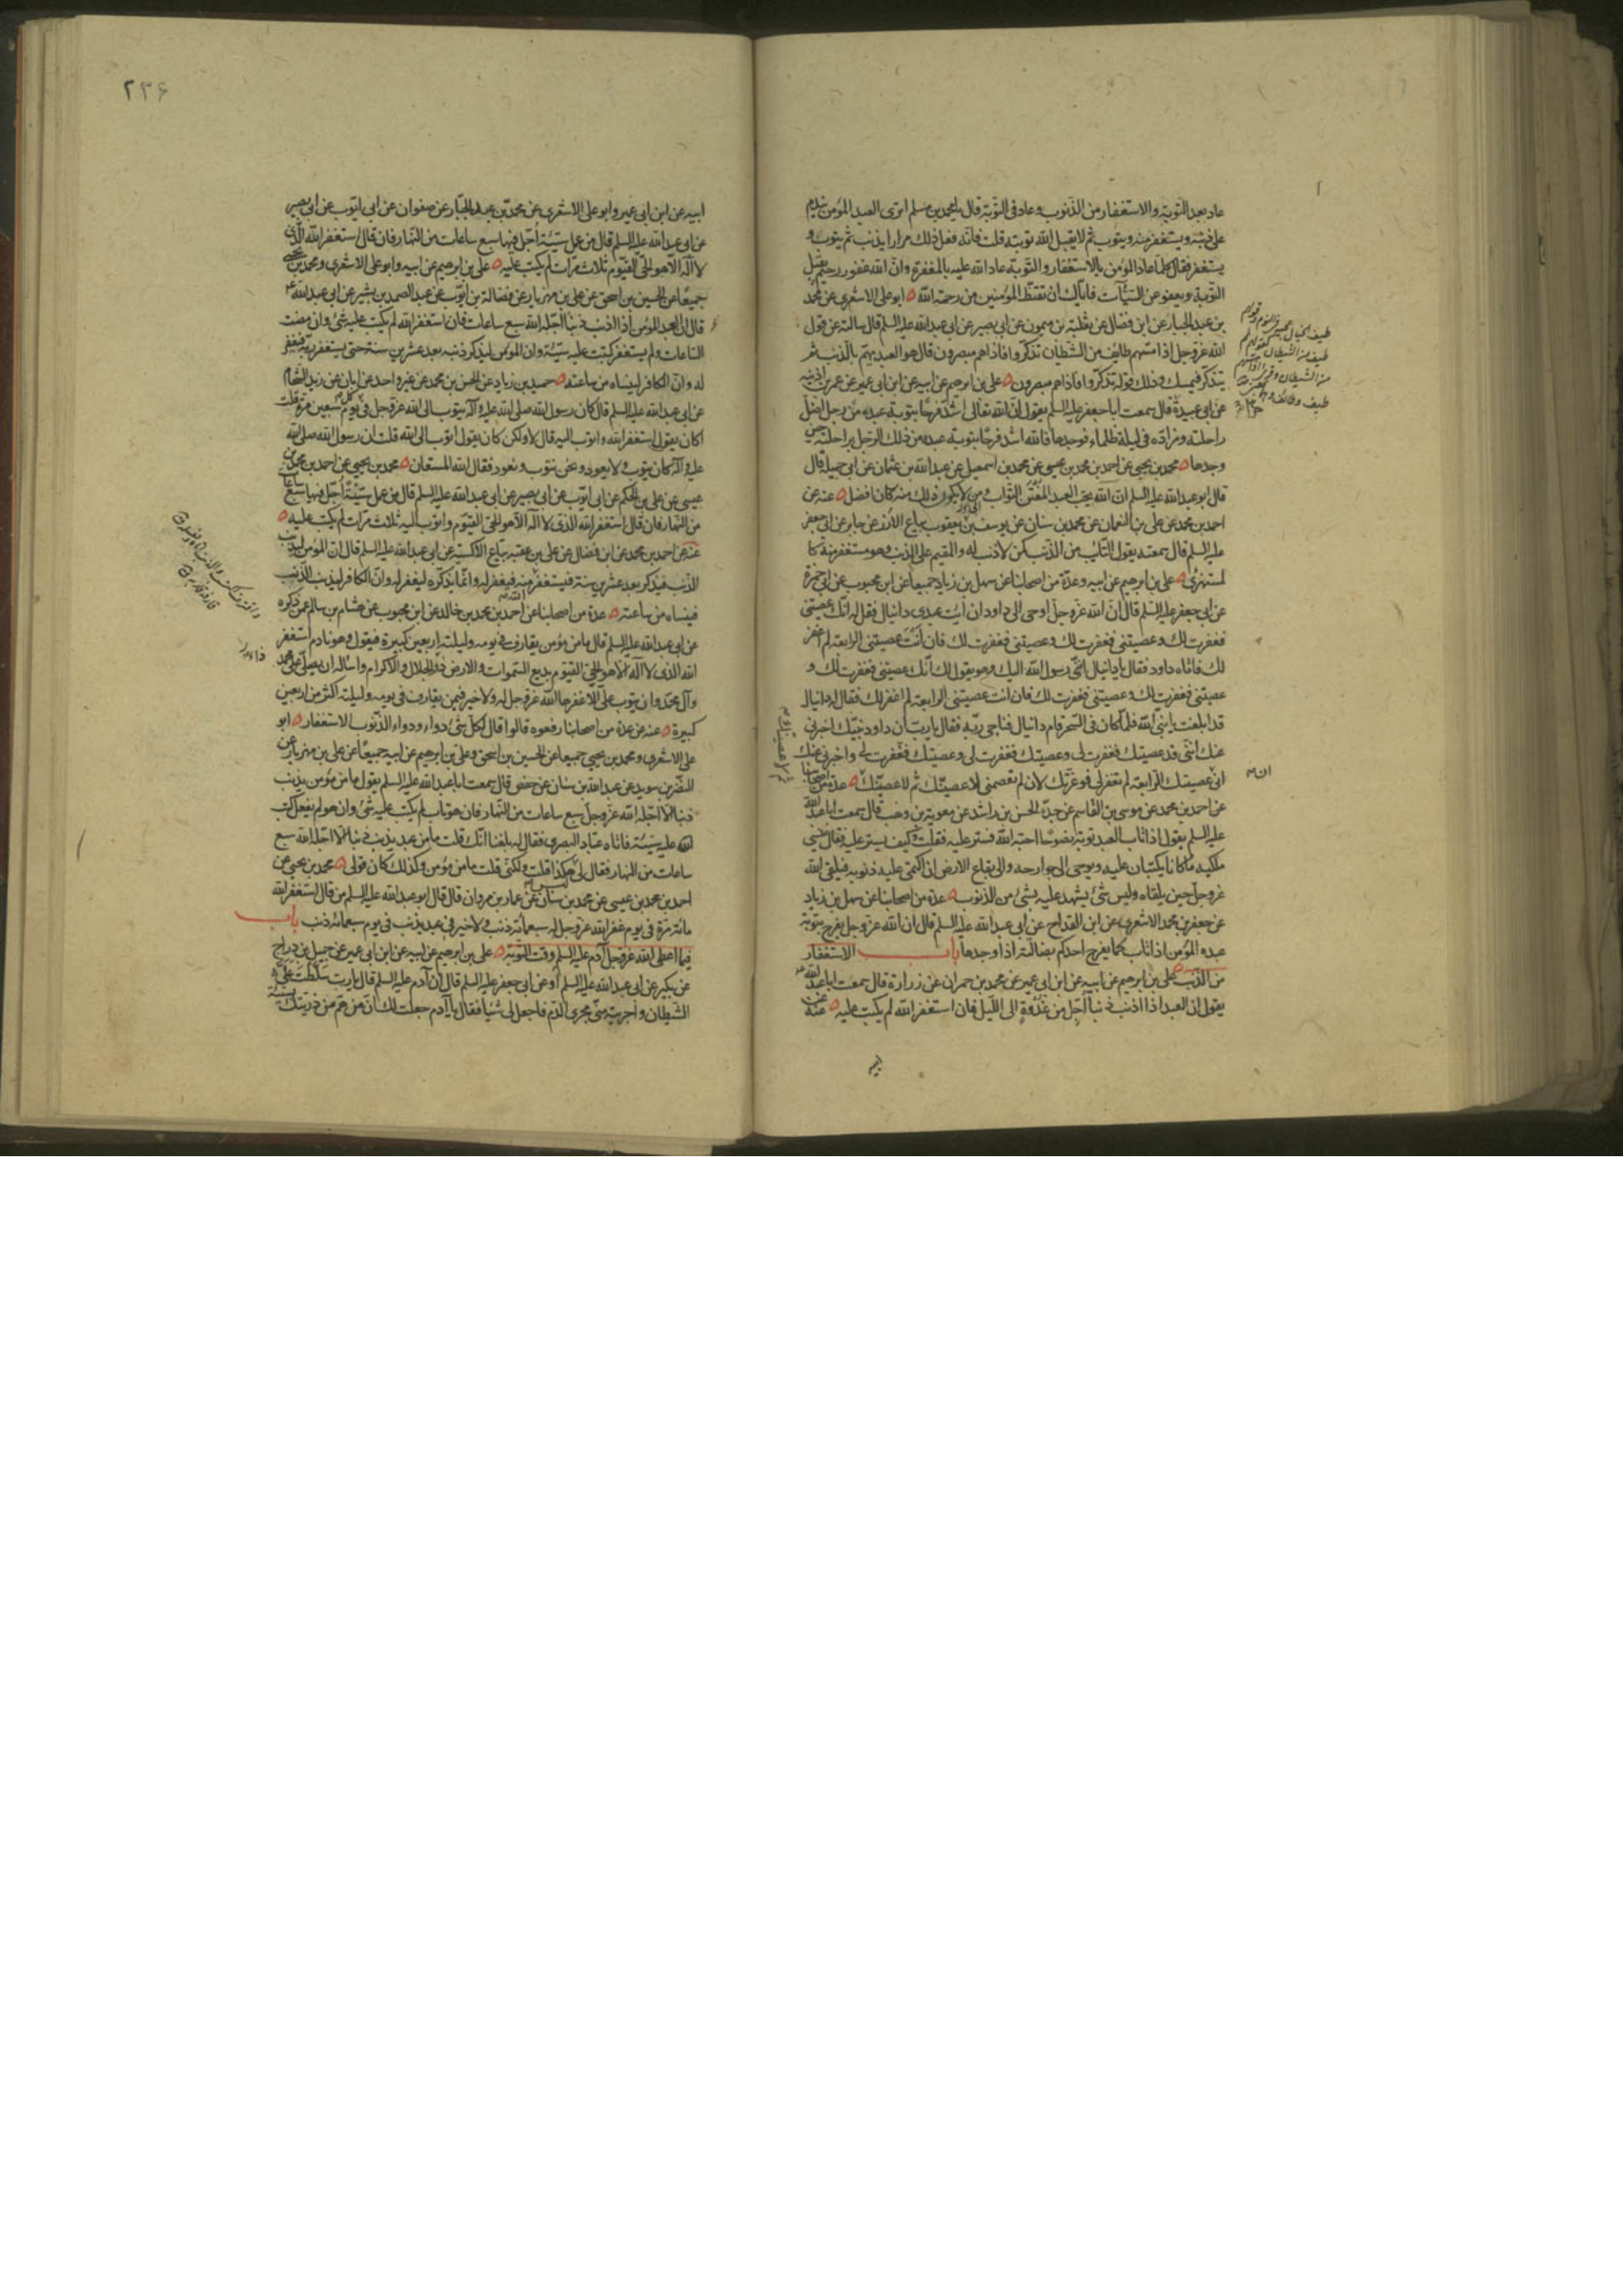 عاد بعد التوبة والاستغفار من الذنوب وعاد فى التوبة قال يا محمد بن مسلم اترى العبد المؤمن يندم
على ذنبه ويستغفر منه ويتوب ثم لا يقبل الله توبته قلت فانه فعل ذلك مرارا يذنب ثم يتوب و
يستغفر فقال كلما عاد المؤمن بالاستغفار والتوبة عاد الله عليه بالمغفرة وان الله غفور رحيم يقبل
التوبة ويعفو عن السيآت فاياك ان تقنط المؤمنين من رحمة الله ابو على الاشعرى عن محمد
بن عبد الجبار عن ابن فضال عن ثعلبة بن ميمون عن ابى بصير عن ابى عبد الله عليه السلم قال سالته عن قول
الله عز وجل اذا مسهم طايف من الشيطان تذكروا فاذا هم مبصرون قال هو العبد يهم بالذنب ثم
يتذكر فيمسك وذلك قوله تذكروا فاذا هم مبصرون على بن ابرهيم عن ابيه عن ابن ابى عمير عن عمر بن اذينه
عن ابى عبيدة قال سمعت ابا جعفر عليه السلم يقول ان الله تعالى اشد فرحا بتوبة عبده من رجل اضل
راحلته ومزاده فى ليلة ظلماء فوجدها فالله اشد فرحا بتوبة عبده من ذلك الرجل براحلته حين
وجدها محمد بن يحيى عن احمد بن محمد بن عيسى عن محمد بن اسمعيل عن عبد الله بن عثمان عن ابى جميلة قال
قال ابو عبد الله عليه السلم ان الله يحب العبد المفتن التواب ومن لا يكون ذلك منه كان افضل عنه عن
احمد بن محمد عن على بن النعمان عن محمد بن سنان عن يوسف بن يعقوب بياع الارز عن جابر عن ابى جعفر
عليه السلم قال سمعته يقول التائب من الذنب كمن لا ذنب له والمقيم على الذنب وهو مستغفر منه كا
لمستهزئ على بن ابرهيم عن ابيه وعدة من اصحابنا عن سهل بن زياد جميعا عن ابن محبوب عن ابى حمزة
عن ابى جعفر عليه السلم قال ان الله عز وجل اوحى الى داود ان أيت عبدى دانيال فقل له انك عصيتنى
فغفرت لك وعصيتنى فغفرت لك وعصيتنى فغفرت لك فان انت عصيتنى الرابعة لم اغفر
لك فاتاه داود فقال يا دانيال انى رسول الله اليك وهو يقول لك انك عصيتنى فغفرت لك و
عصيتنى فغفرت لك وعصيتنى فغفرت لك فان انت عصيتنى الرابعة لم اغفر لك فقال له دانيال
قد ابلغت يا نبى الله فلما كان فى السحر قام دانيال فناجى ربه فقال يا رب ان داود نبيك اخبرنى
عنك اننى قد عصيتك فغفرت لى وعصيتك فغفرت لى وعصيتك فغفرت لى واخبرنى عنك
انى عصيتك الرابعة لم تغفر لى فوعزتك لان لم تعصمنى لاعصينك ثم لاعصينك عدة من اصحابنا
عن احمد بن محمد عن موسى بن القاسم عن جده الحسن بن راشد عن معوية بن وهب قال سمعت ابا عبد الله
عليه السلم يقول اذا تاب العبد توبة نصوحا احبه الله فستر عليه فقلت وكيف يستر عليه فقال ينسى
ملكيه ما كانا يكتبان عليه ويوحى الى جوارحه والى بقاع الارض ان اكتمى عليه ذنوبه فيلقى الله
عز وجل حين يلقاه وليس شئ يشهد عليه بشئ من الذنوب عدة من اصحابنا عن سهل بن زياد
عن جعفر بن محمد الاشعرى عن ابن القداح عن ابى عبد الله عليه السلم قال ان الله عز وجل يفرح بتوبة
عبده المؤمن اذا تاب كما يفرح احدكم بضالته اذا وجدها باب الاستغفار
من الذنب على بن ابرهيم عن ابيه عن ابن ابى عمير عن محمد بن حمران عن زرارة قال سمعت ابا عبد الله
يقول ان العبد اذا اذنب ذنبا اجل من غدوة الى الليل فان استغفر الله لم يكتب عليه عنه عن
ان
٢٣۶
ابيه عن ابن ابى عمير وابو على الاشعرى عن محمد بن عبد الجبار عن صفوان عن ابى ايوب عن ابى بصير
عن ابى عبد الله عليه السلم قال من عمل سيئة اجل فيها سبع ساعات من النهار فان قال استغفر الله الذى
لا اله الا هو الحى القيوم ثلاث مرات لم يكتب عليه على بن ابرهيم عن ابيه وابو على الاشعرى ومحمد بن يحيى
جميعا عن الحسين بن اسحق عن على بن مهزيار عن فضالة بن ايوب عن عبد الصمد بن بشير عن ابى عبد الله
قال ان العبد المؤمن اذا اذنب ذنبا اجله الله سبع ساعات فان استغفر الله لم يكتب عليه شئ وان مضت
الساعات ولم يستغفر كتبت عليه سيئة وان المؤمن ليذكر ذنبه بعد عشرين سنة حتى يستغفر ربه فيغفر
له وان الكافر لينساه من ساعته حميد بن زياد عن الحسن بن محمد عن غير واحد عن ابان عن زيد الشحام
عن ابى عبد الله عليه السلم قال كان رسول الله صلى الله عليه وآله يتوب الى الله عز وجل فى كل يوم سبعين مرة قلت
اكان يقول استغفر الله واتوب اليه قال لا ولكن كان يقول اتوب الى الله قلت ان رسول الله صلى الله
عليه وآله كان يتوب ولا يعود ونحن نتوب ونعود فقال الله المستعان محمد بن يحيى عن احمد بن محمد بن
عيسى عن على بن الحكم عن ابى ايوب عن ابى بصير عن ابى عبد الله عليه السلم قال من عمل سيئة اجل فيها سبع ساعات
من النهار فان قال استغفر الله الذى لا اله الا هو الحى القيوم واتوب اليه ثلاث مرات لم يكتب عليه
عنه عن احمد بن محمد عن ابن فضال عن على بن عقبه بياع الاكسية عن ابى عبد الله عليه السلم قال ان المؤمن ليذنب
الذنب فيذكر بعد عشرين سنة فيستغفر الله منه فيغفر له وانما يذكره ليغفر له وان الكافر ليذنب الذنب
فينساه من ساعته عدة من اصحابنا عن احمد بن محمد بن خالد عن ابن محبوب عن هشام بن سالم عمن ذكره
عن ابى عبد الله عليه السلم قال ما من مؤمن يقارف فى يومه وليلته اربعين كبيرة فيقول وهو نادم استغفر
الله الذى لا اله الا هو الحى القيوم بديع السموات والارض ذو الجلال والاكرام واسأله ان يصلى على محمد
وآل محمد وان يتوب على الا غفرها الله عز وجل له ولا خير فيمن يقارف فى يومه وليلته اكثر من اربعين
كبيرة عنه عن عدة من اصحابنا رفعوه قالوا قال لكل شئ دواء ودواء الذنوب الاستغفار ابو
على الاشعرى ومحمد بن يحيى جميعا عن الحسين بن اسحق وعلى بن ابرهيم عن ابيه جميعا عن على بن مهزيار عن
النضر بن سويد عن عبد الله بن سنان عن حفص قال سمعت ابا عبد الله عليه السلم يقول ما من مؤمن يذنب
ذنبا الا اجله الله عز وجل سبع ساعات من النهار فان هو تاب لم يكتب عليه شئ وان هو لم يفعل كتب
الله عليه سيئة فاتاه عباد البصرى فقال له بلغنا انك قلت ما من عبد يذنب ذنبا الا اجله الله سبع
ساعات من النهار فقال لى هكذا قلت ولكنى قلت ما من مؤمن وكذلك كان قولى محمد بن يحيى عن
احمد بن محمد بن عيسى عن محمد بن سنان عن عمار بن مروان قال قال ابو عبد الله عليه السلم من قال استغفر الله
مائة مرة فى يوم غفر الله عز وجل له سبعمائة ذنب ولا خير فى عبد يذنب فى يوم سبعمائة ذنب باب
فيما اعطى الله عز وجل آدم عليه السلم وقت التوبة على بن ابرهيم عن ابيه عن ابن ابى عمير عن جميل بن دراج
عن بكير عن ابى عبد الله عليه السلم او عن ابى جعفر عليه السلم قال ان آدم عليه السلم قال يا رب سلطت على
الشيطان واجريته منى مجرى الدم فاجعل لى شيئا فقال يا آدم جعلت لك ان من هم من ذريتك بسيئة